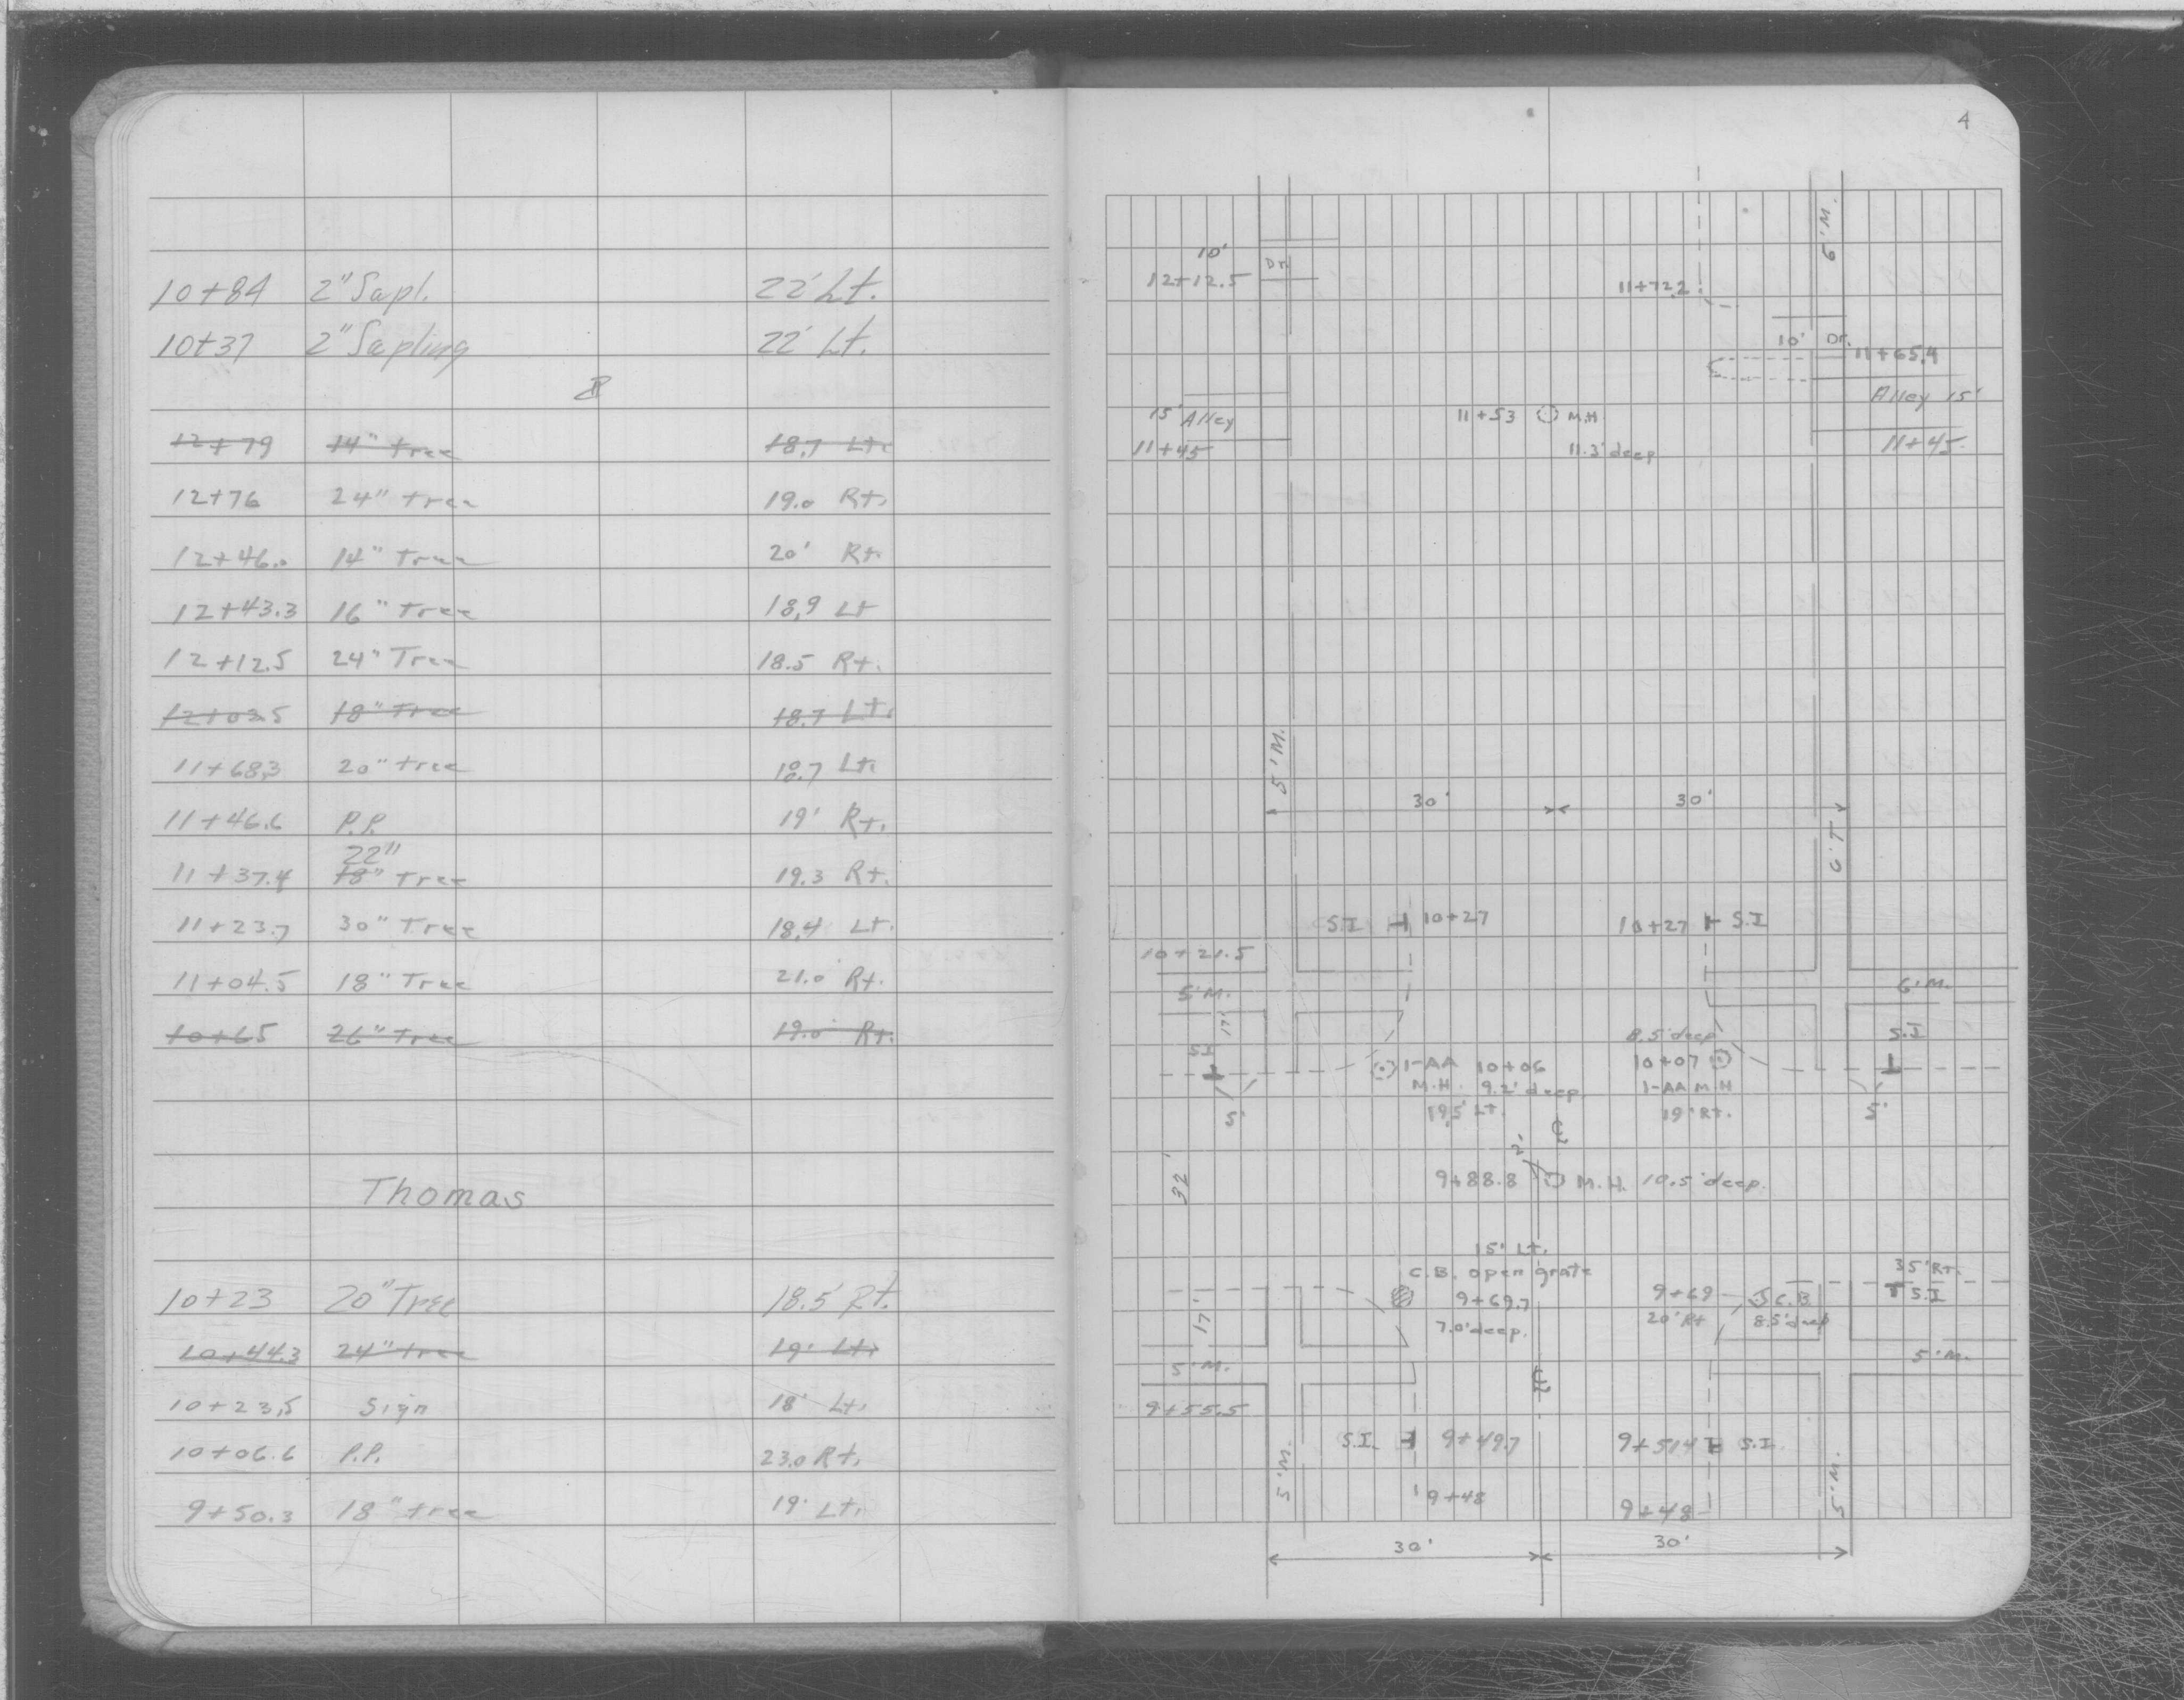 10+84 2" Sapl. 22' Lt.
10+37 2" Sapling 22' Lt.
12+79 14" tree 18.7 Lt.
12+76 24" tree 19.0 Rt.
12+46.0 14" Tree 20' Rt.
12+43.3 16" Tree 18.9 Lt
12+12.5 24" Tree 18.5 Rt.
12+03.5 18" Tree 18.7 Lt.
11+68.3 20" tree 18.7 Lt.
11+46.6 P.P. 19' Rt.
22"
11+37.4 18" Tree 19.3 Rt.
11+23.7 30" Tree 18.4 Lt.
11+04.5 18" Tree 21.0 Rt.
10+65 26" Tree 19.0 Rt.
Thomas
10+23 20" Tree 18.5' Rt.
10+44.3 24" tree 19' Lt.
10+23.5 Sign 18' Lt.
10+06.6 P.P. 23.0 Rt.
9+50.3 18" tree 19' Lt.
4
6' M.
10'
12+12.5 Dr.
11+72.2
10' Dr. 11+65.4
Alley 15'
15' Alley 11+53 M.H
11+45 11.3' deep 11+45
5' M.
30' 30'
S.I 10+27 10+27 S.I
10+21.5
5' M. 6' M.
17'
8.5' deep S.I
S.I 1-AA 10+06 10+07
M.H. 9.2' deep 1-AA M.H
19.5' Lt. 19' Rt.
5' 5'
2'
32' 9+88.8 M.H. 10.5' deep.
15' Lt.
C.B. open grate 35' Rt.
9+69.7 9+69 C.B. S.I
17' 7.0' deep. 20' Rt 8.5' deep
5' M. 5' M.
9+55.5
S.I. 9+49.7 9+51.4 S.I.
5' M. 5' M.
9+48 9+48
30' 30'